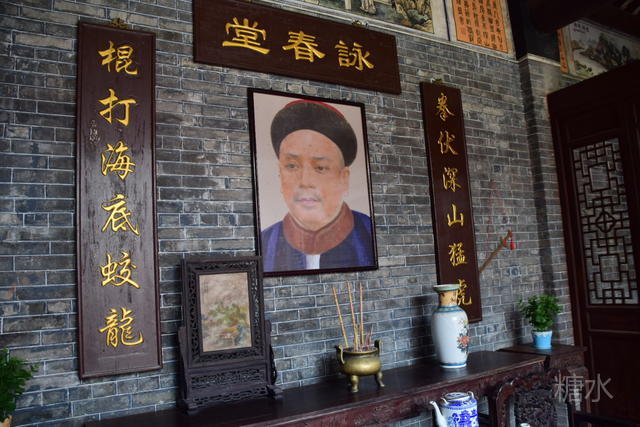 詠春堂
拳伏深山猛虎
棍打海底蛟龍
糖水